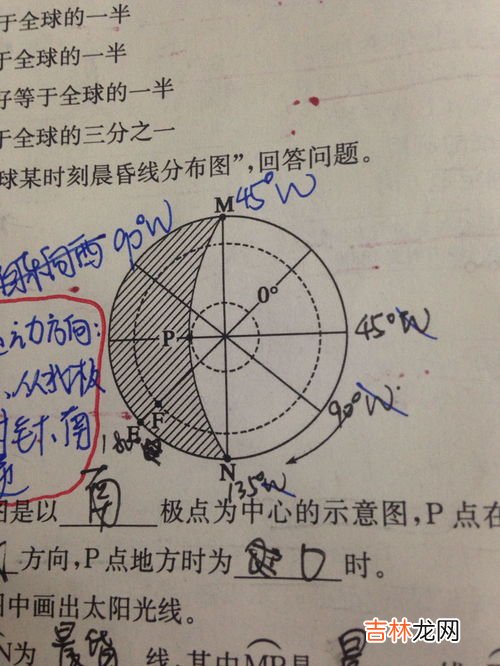 于全球的一半
于全球的一半
好等于全球的一半
于全球的三分之一
球某时刻晨昏线分布图”，回答问题。
M 45°W
90°W
自东向西
0°
方向：
P
45°W
90°W
F
E
180°
N
135°W
图是以 南 极点为中心的示意图，P点在
方向，P点地方时为 0 时。
图中画出太阳光线。
N为 晨昏 线，其中MP是
吉林龙网